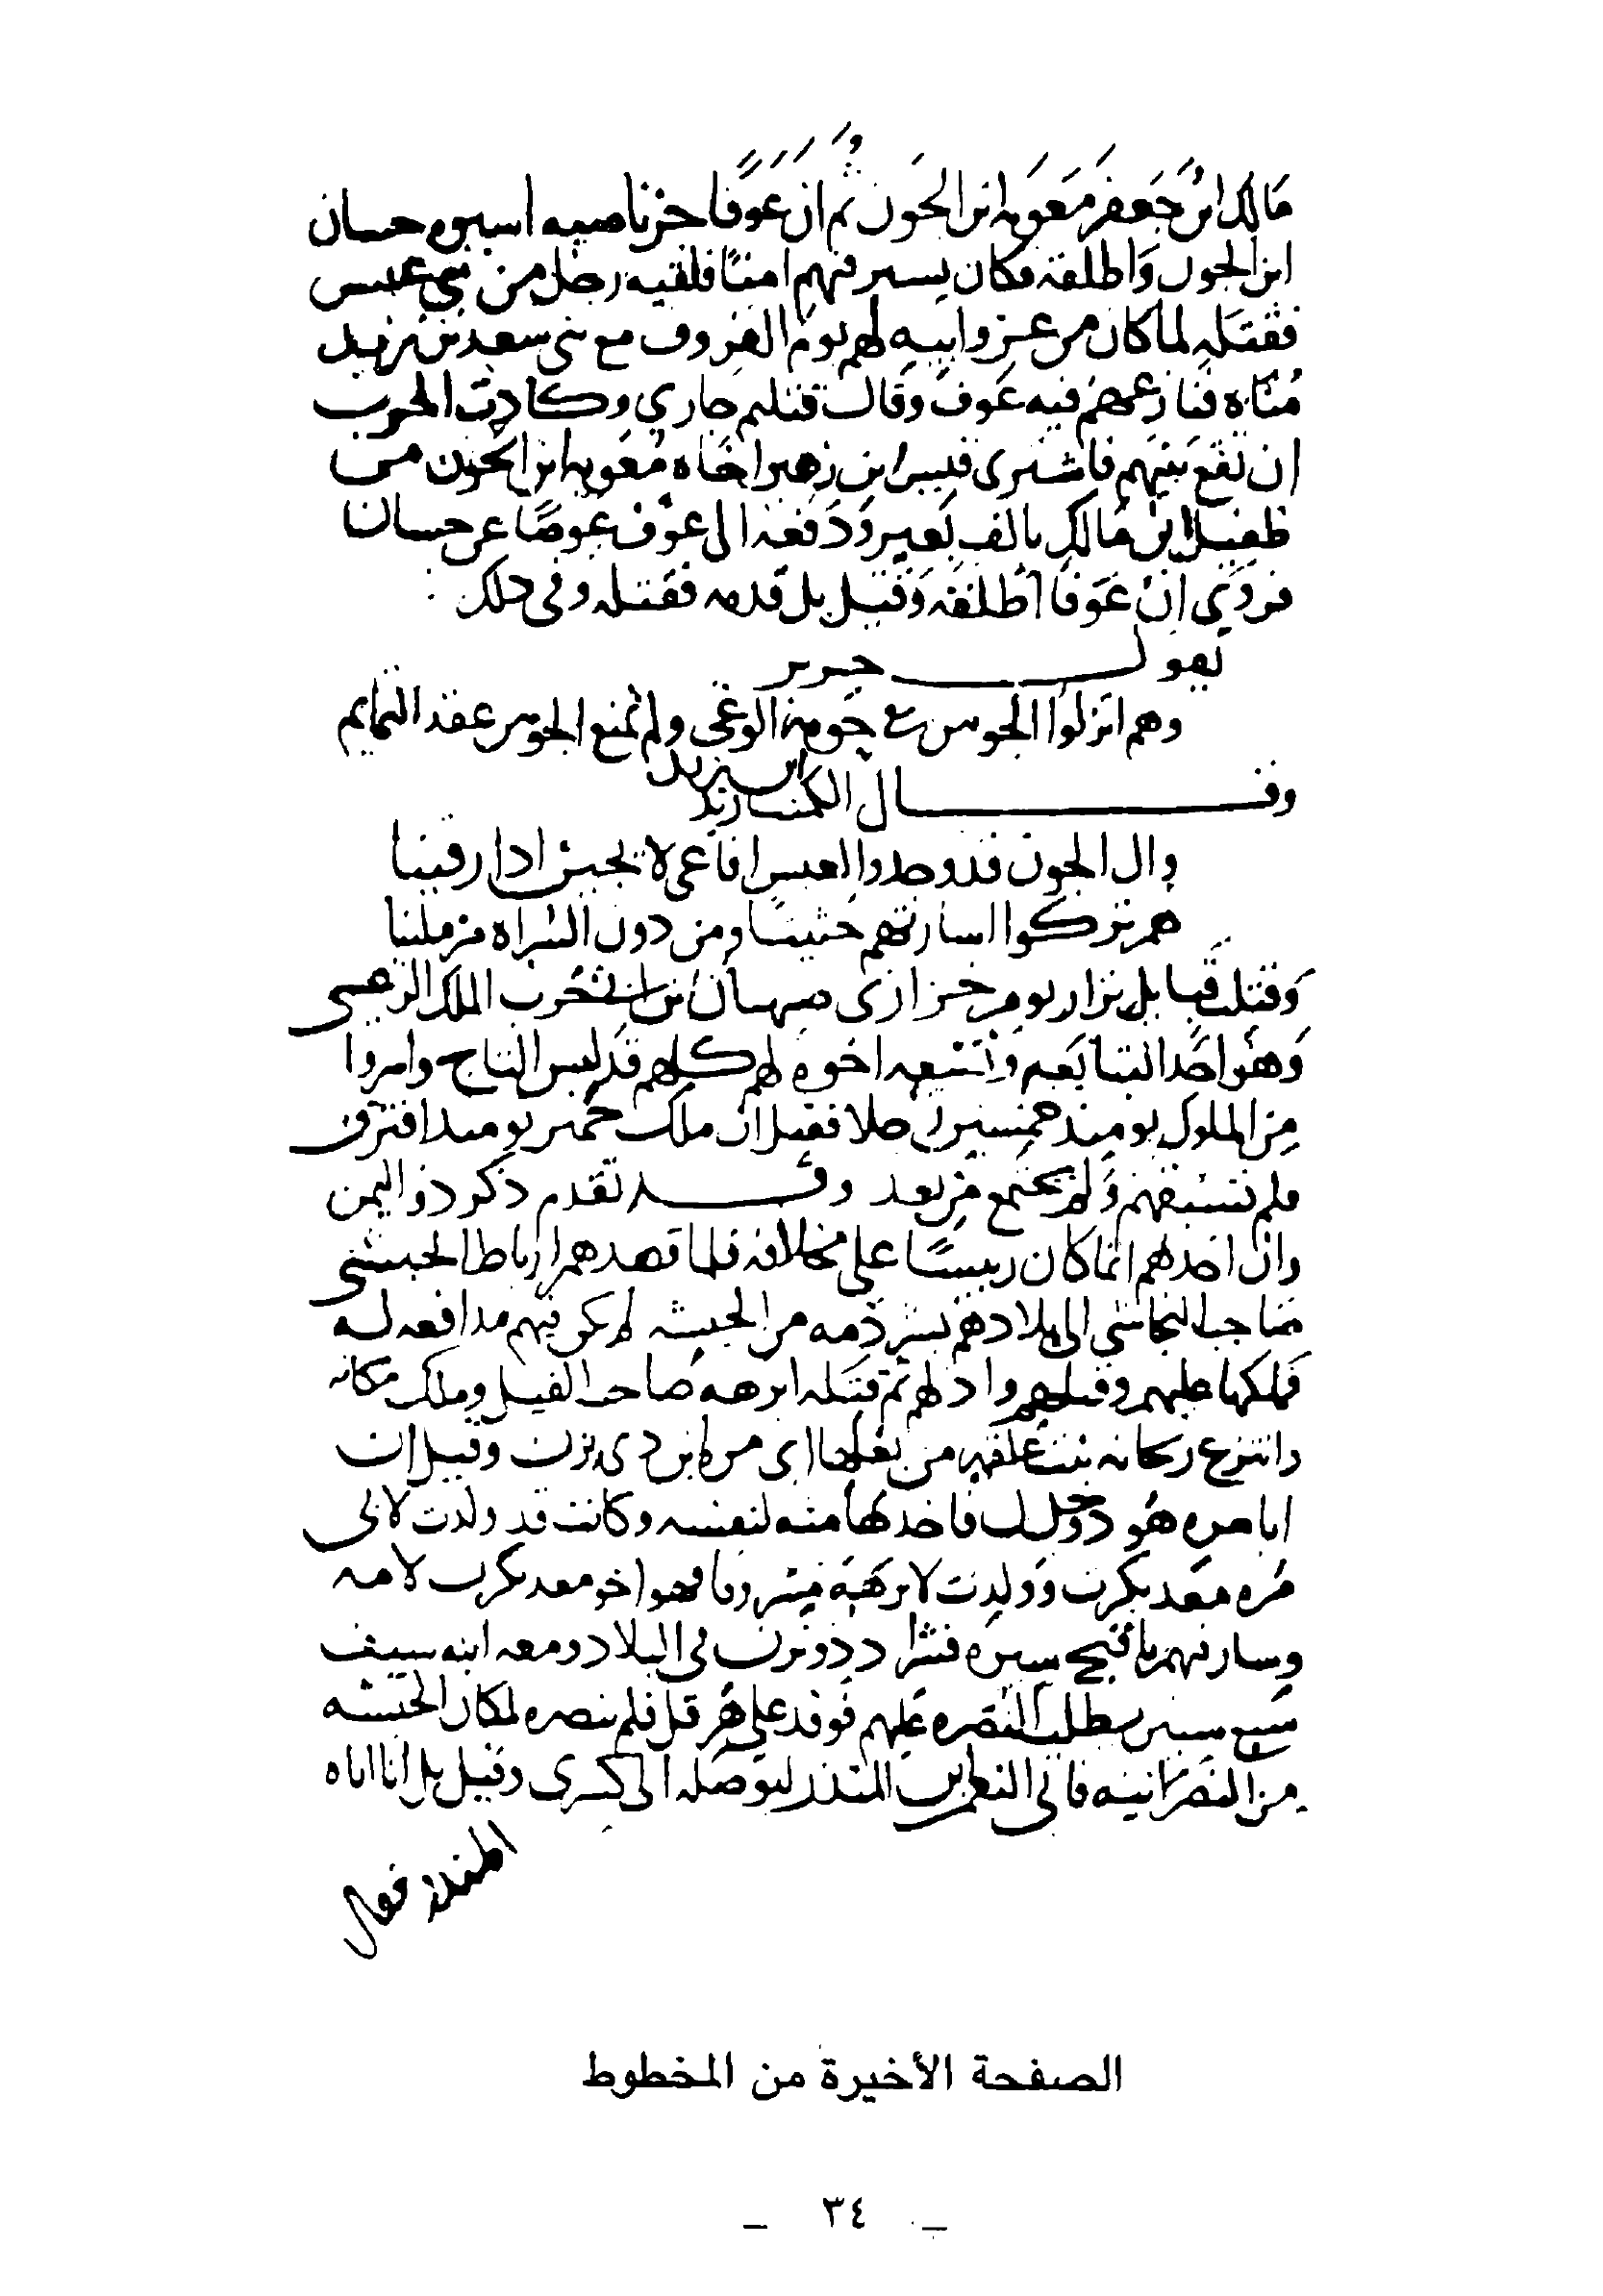 مَالك ابنُ جَعفر مَعَويه ابن الجَون ثم ان عَوفًا جز ناصيه اسيره حسان
ابن الجون وَاطلقه فكان يسير فيهم امنًا فلقيه رجل من بني عبس
فقتَله لما كان من غزو ابيه لهم يوم الفروق مع بني سعد بن زيد
مُنَاه فنازعهم فيه عَوف وَقال قتلتم جاري وكادت الحرب
ان تقع بَينهم فاشترى قيس ابن زهير اخَاه مُعَويه ابن الجَون من
طفيل ابن مَالك بالف بَعير وَدَفعه الى عَوف عوضًا عن حسان
فروَي ان عَوفًا اطلقه وَقيل بل قدمه فقتله وفي ذلك
يقول جرير
وهم انزلوا الجونين في حَومة الوغى ولم تمنع الجونين عقد التمايم
وقال الكميت ابن زيد
وال الجون قد وجدوا لعبس افاعى لا تجيش اذا رقينا
هم تركوا اسارتهم حثيثًا ومن دون السراه مزملينا
وَقتلت قبايل نزار يوم خزازى صهبان بن ذي خرب الملك الرعيني
وَهو احَد التبابَعه وتسعه اخوه لهم كلهم قد لبس التاج واسروا
من الملوك يوميذ خمسين رجلا فقيل ان ملك حمير يوميذ افترق
فلم تنبسق لهم وَلم يجتمع من بعد وقد تقدم ذكر ذو اليمن
وان احدهم انما كان رييسًا على مخلافه فلما قصدهم ارياط الحبشي
صَاحب النجاشي الى بلادهم بشرذمه من الحبشه لم يكن فيهم مدافعه له
فملكها عليهم وقتلهم واذلهم ثم قتَله ابرهه صَاحب الفيل وملك مكانه
وانتزع ريحانه بنت علقمه من بعلها ابي مره ابن ذي يزن وقيل ان
ابا مره هو ذو يزن فاخذها منه لنفسه وكانت قد ولدت لابي
مُره معَدي كرب وَولدت لابرهَه مسروقا فهو اخو معدي كرب لامه
وسار فيهم باقبح سيره فشرد ذو يزن في البلاد ومعه ابنه سيف
سبع سنين يطلب النُصره عَليهم فوفد على هرقل فلم ينصره لمكان الحبشه
من النصرَانيه فاتى النعمان ابن المنذر ليوصله الى كسرى وقيل بل اتا اباه
المنذر فقال
الصفحة الأخيرة من المخطوط
_ ٣٤ _